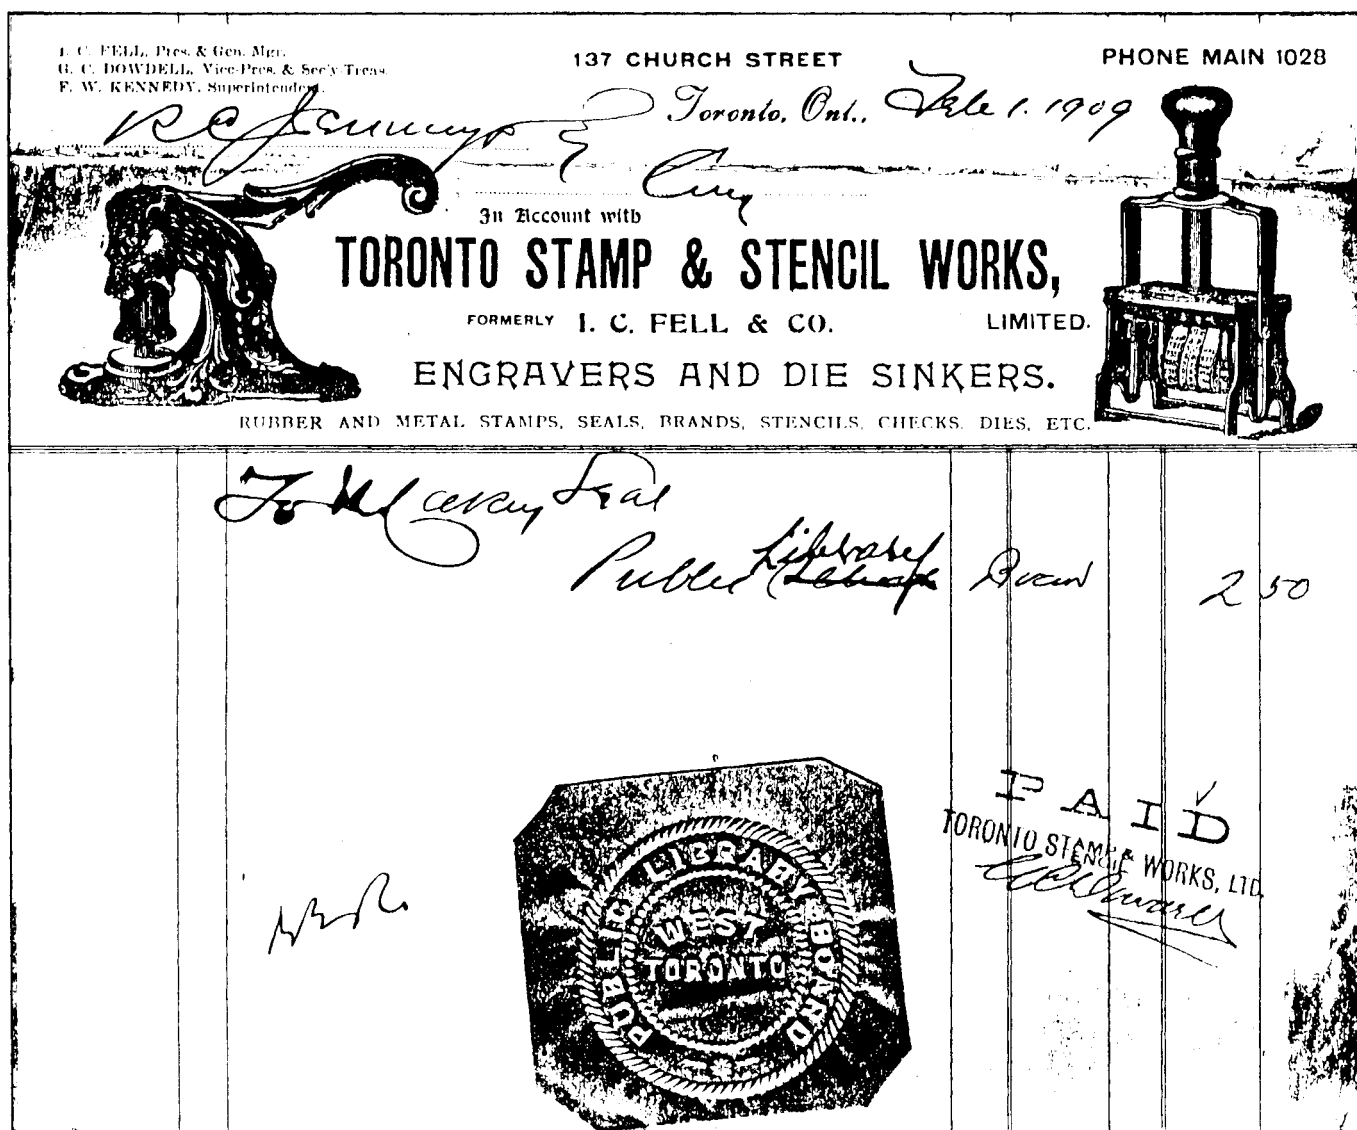 I. C. FELL, Pres. & Gen. Mgr.
G. C. DOWDELL, Vice-Pres. & Sec'y-Treas.
F. W. KENNEDY, Superintendent.
137 CHURCH STREET
PHONE MAIN 1028
Toronto, Ont., Feb 1. 1909
City
In Account with
TORONTO STAMP & STENCIL WORKS,
FORMERLY I. C. FELL & CO. LIMITED.
ENGRAVERS AND DIE SINKERS.
RUBBER AND METAL STAMPS, SEALS, BRANDS, STENCILS, CHECKS, DIES, ETC.
To Seal
Public Library Board 2 50
PAID
TORONTO STAMP & STENCIL WORKS, LTD.
PUBLIC LIBRARY BOARD
WEST
TORONTO